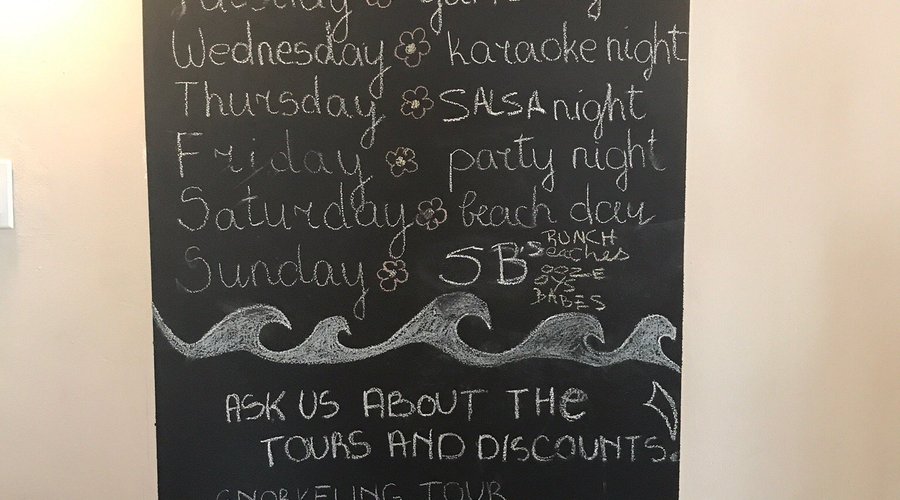 Tuesday
Wednesday karaoke night
Thursday SALSA night
Friday party night
Saturday beach day
Sunday 5 B's
RUNCH
eaches
OOZE
OYS
BABES
ASK US ABOUT THe
TOURS AND DISCOUNTS!
SNORKELING TOUR